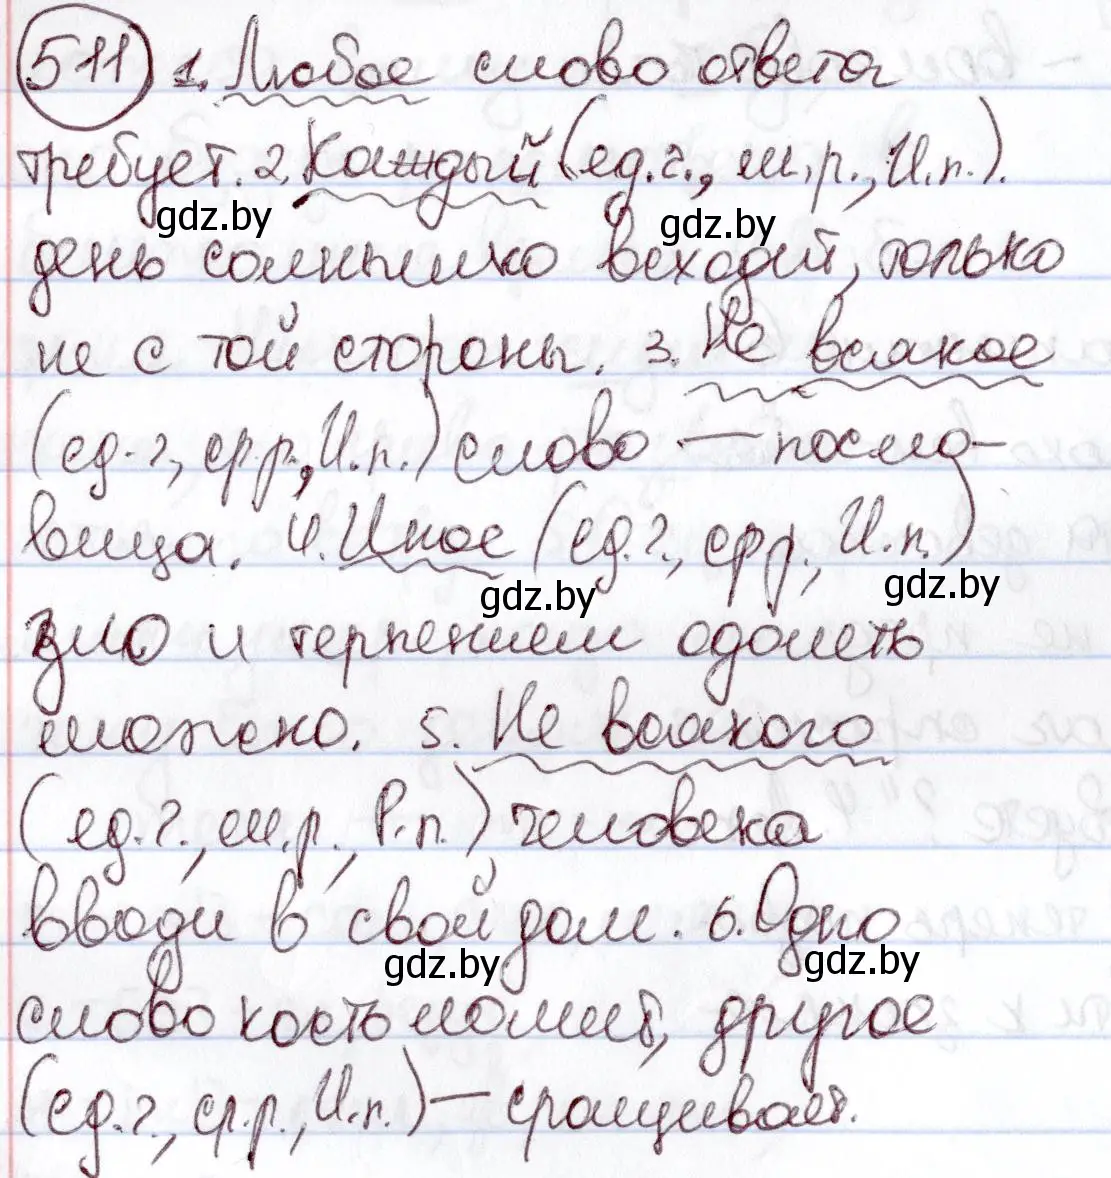 511 1. Любое слово ответа
требует. 2. Каждый (ед.ч., м.р., И.п.).
gdz.by gdz.by
день солнышко всходит, только
не с той стороны. 3. Не всякое
(ед.ч., ср.р., И.п.) слово — посло-
вица. 4. Иное (ед.ч., ср.р., И.п.)
gdz.by gdz.by
зло и терпением одолеть
можно. 5. Не всякого
(ед.ч., м.р., Р.п.) человека
вводи в свой дом. 6. Одно
gdz.by gdz.by
слово кость ломит, другое
(ед.ч., ср.р., И.п.) — сращивает.